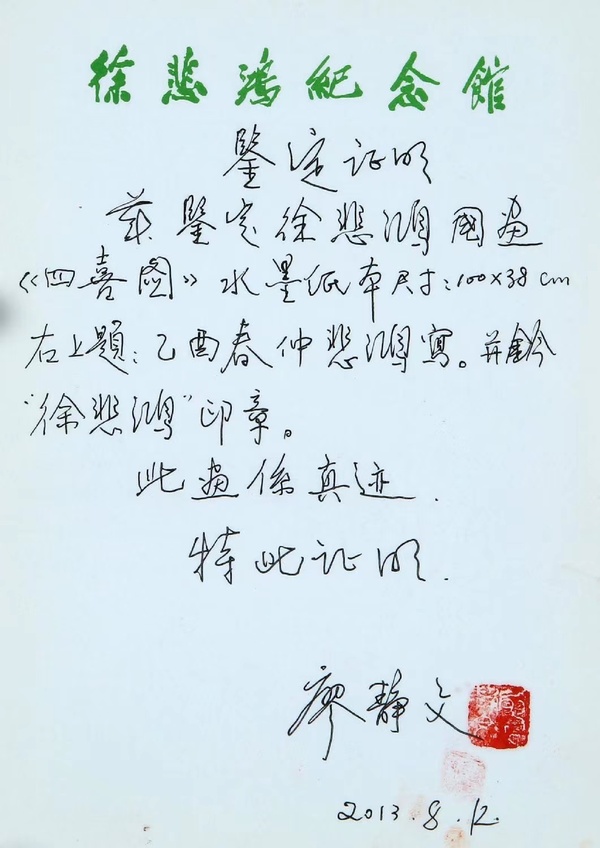 徐悲鴻紀念館
鑒定证明
兹鑒定徐悲鴻國畫
《四喜圖》水墨纸本尺寸：100×38cm
右上题：乙酉春仲悲鴻寫。并鈐
“徐悲鴻”印章。
此畫係真迹.
特此证明.
廖静文
2013.8.12.